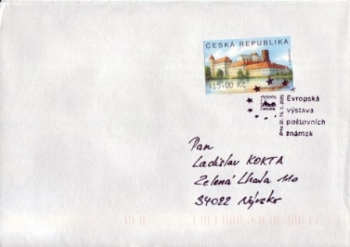 ČESKÁ REPUBLIKA
15.00 Kč
Evropská
výstava
poštovních
známek
Pan
Ladislav KOKTA
Zelená Lhota 110
34022 Nýrsko